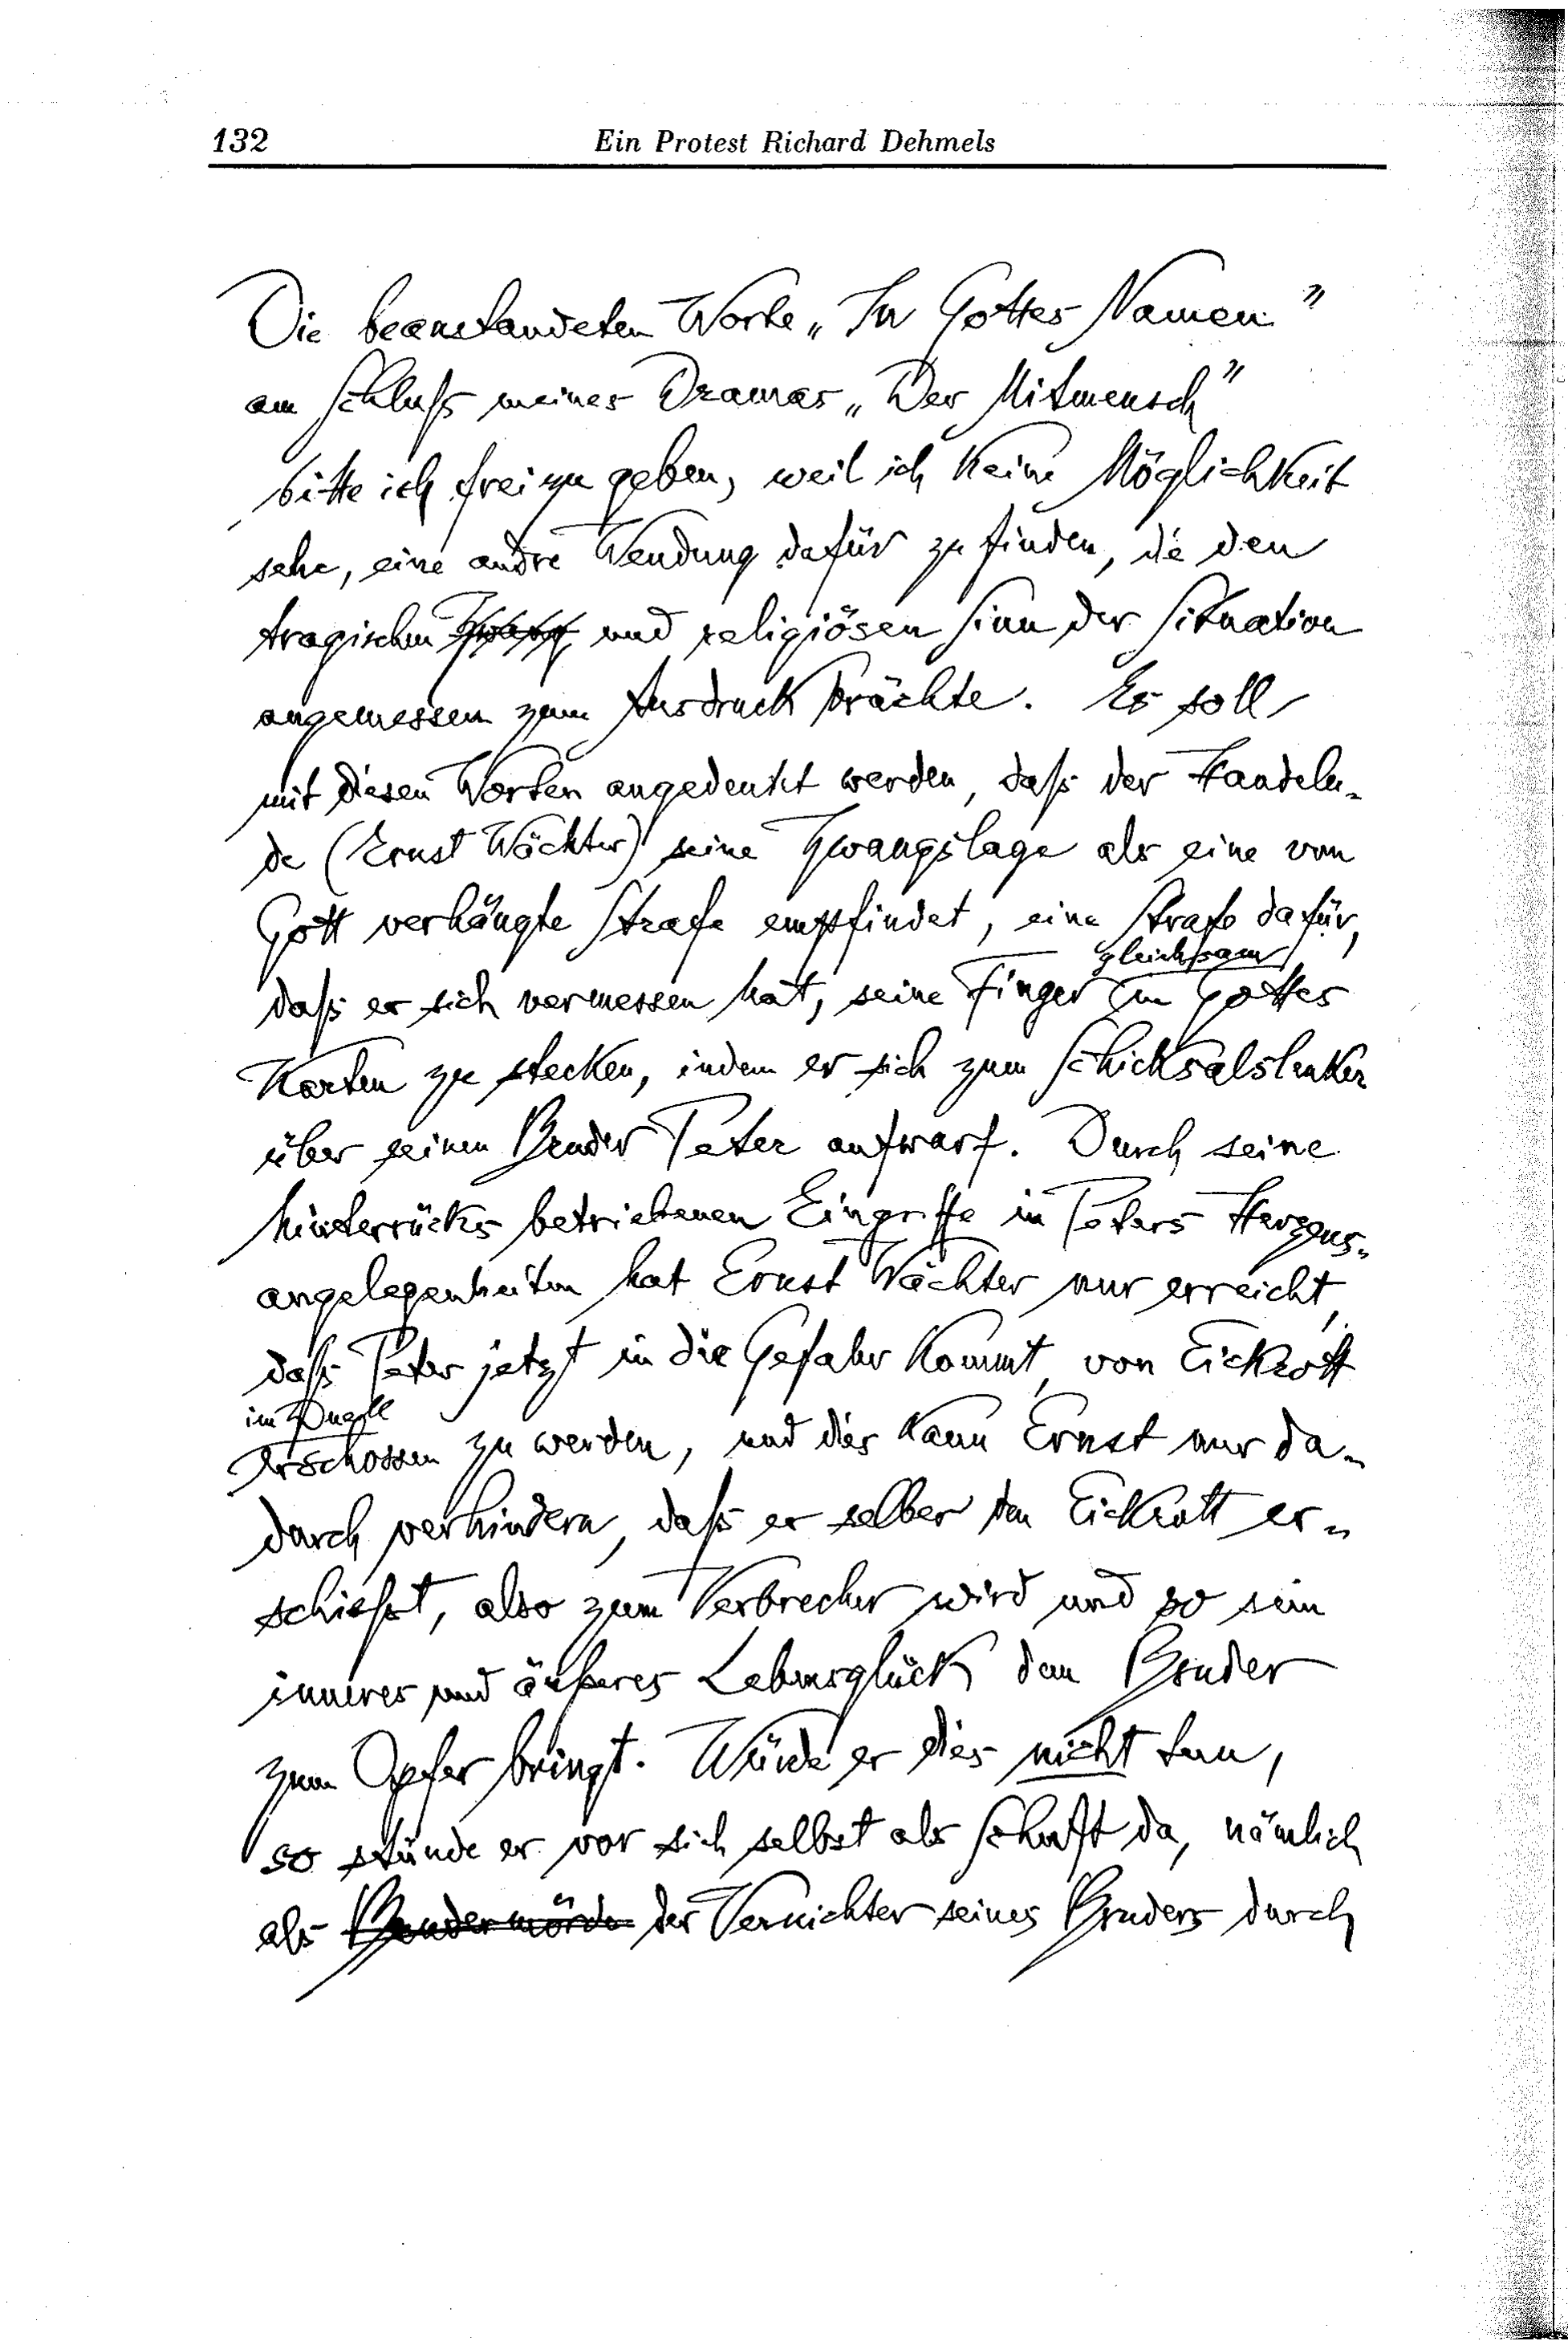 132
Ein Protest Richard Dehmels
Die beanstandeten Worte „In Gottes Namen"
am Schluß meines Dramas „Der Mitmensch"
bitte ich freizugeben, weil ich keine Möglichkeit
sehe, eine andre Wendung dafür zu finden, die den
tragischen und religiösen Sinn der Situation
angemessen zum Ausdruck brächte. Es soll
mit diesen Worten angedeutet werden, daß der Handeln-
de (Ernst Wächter) seine Zwangslage als eine von
Gott verhängte Strafe empfindet, eine Strafe dafür,
gleichsam
daß er sich vermessen hat, seine Finger in Gottes
Karten zu stecken, indem er sich zum Schicksalslenker
über seinen Bruder Peter aufwarf. Durch seine
hinterrücks betriebenen Eingriffe in Peters Herzens-
angelegenheiten hat Ernst Wächter nur erreicht,
daß Peter jetzt in die Gefahr kommt, von Eickrott
im Duell
erschossen zu werden, und dies kann Ernst nur da-
durch verhindern, daß er selber den Eickrott er-
schießt, also zum Verbrecher wird und so sein
inneres und äußeres Lebensglück dem Bruder
zum Opfer bringt. Würde er dies nicht tun,
so stünde er vor sich selbst als Schuft da, nämlich
als Brudermörder der Vernichter seines Bruders durch